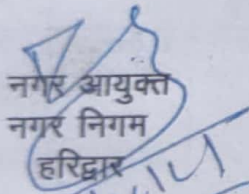 नगर आयुक्त
नगर निगम
हरिद्वार